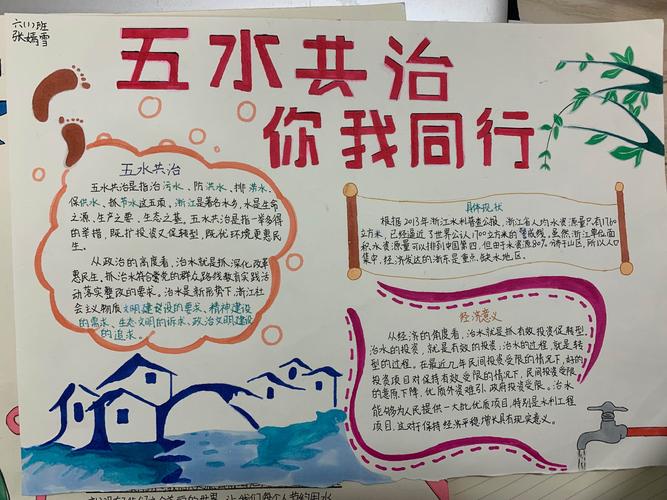 六(1)班
张嫣雪
五水共治
你我同行
五水共治
五水共治是指治污水、防洪水、排涝水、
保供水、抓节水这五项,浙江是著名水乡,水是生命
之源、生产之要、生态之基。五水共治是指一举多得
的举措,既扩投资又促转型,既优环境更惠民
生。
从政治的高度看,治水就是抓深化改革
惠民生。抓治水符合党的群众路线教育实践活
动落实整改的要求。治水是新形势下,浙江社
会主义物质文明建设的要求、精神建设
的需求、生态文明的诉求、政治文明建设
的追求。
具体现状
根据2013年浙江水利普查公报,浙江省人均水资源量只有1760
立方米,已经逼近了世界公认1700立方米的警戒线。虽然浙江单位面
积水资源量可以排到中国第四,但由于水资源80%分布于山区,所以人口
集中,经济发达的浙东是重点缺水地区。
经济意义
从经济的角度看,治水就是抓有效投资促转型,
治水的投资,就是有效的投资;治水的过程,就是转
型的过程。在最近几年民间投资受限的情况下,好的
投资项目对保持有效受限的情况下,民间投资受限
的意愿下降,优质外资难引,政府投资受限。治水
能够为人民提供一大批优质项目,特别是水利工程
项目,这对于保持经济平稳增长具有现实意义。